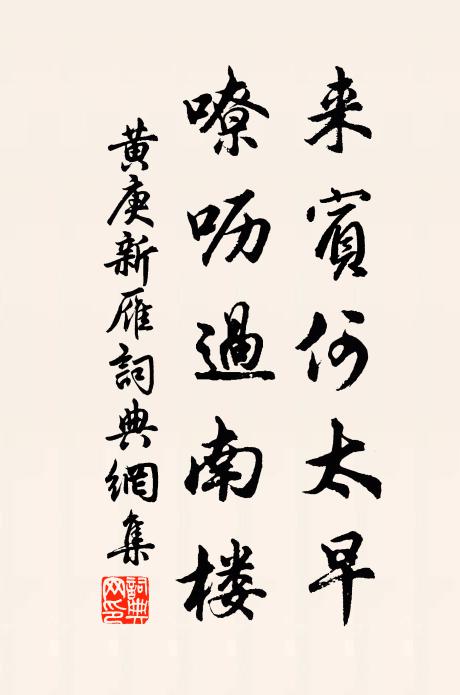 来賓何太早
嘹呖過南楼
黄庚新雁詞典網集
詞典網印